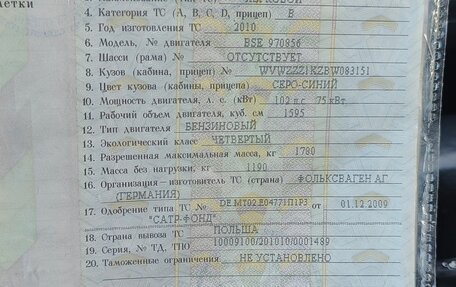 летки
4. Категория ТС (A, B, C, D, прицеп) B
5. Год изготовления ТС 2010
6. Модель, № двигателя BSE 970856
7. Шасси (рама) № ОТСУТСТВУЕТ
8. Кузов (кабина, прицеп) № WVWZZZ1KZBW083151
9. Цвет кузова (кабины, прицепа) СЕРО-СИНИЙ
10. Мощность двигателя, л. с. (кВт) 102 л.с 75 кВт
11. Рабочий объем двигателя, куб. см 1595
12. Тип двигателя БЕНЗИНОВЫЙ
13. Экологический класс ЧЕТВЕРТЫЙ
14. Разрешенная максимальная масса, кг 1780
15. Масса без нагрузки, кг 1190
16. Организация—изготовитель ТС (страна) ФОЛЬКСВАГЕН АГ
(ГЕРМАНИЯ)
17. Одобрение типа ТС № DE.MT02.E04771П1Р3 от 01.12.2009
"САТР-ФОНД"
18. Страна вывоза ТС ПОЛЬША
19. Серия, № ТД, ТПО 10009100/201010/0001489
20. Таможенные ограничения НЕ УСТАНОВЛЕНО